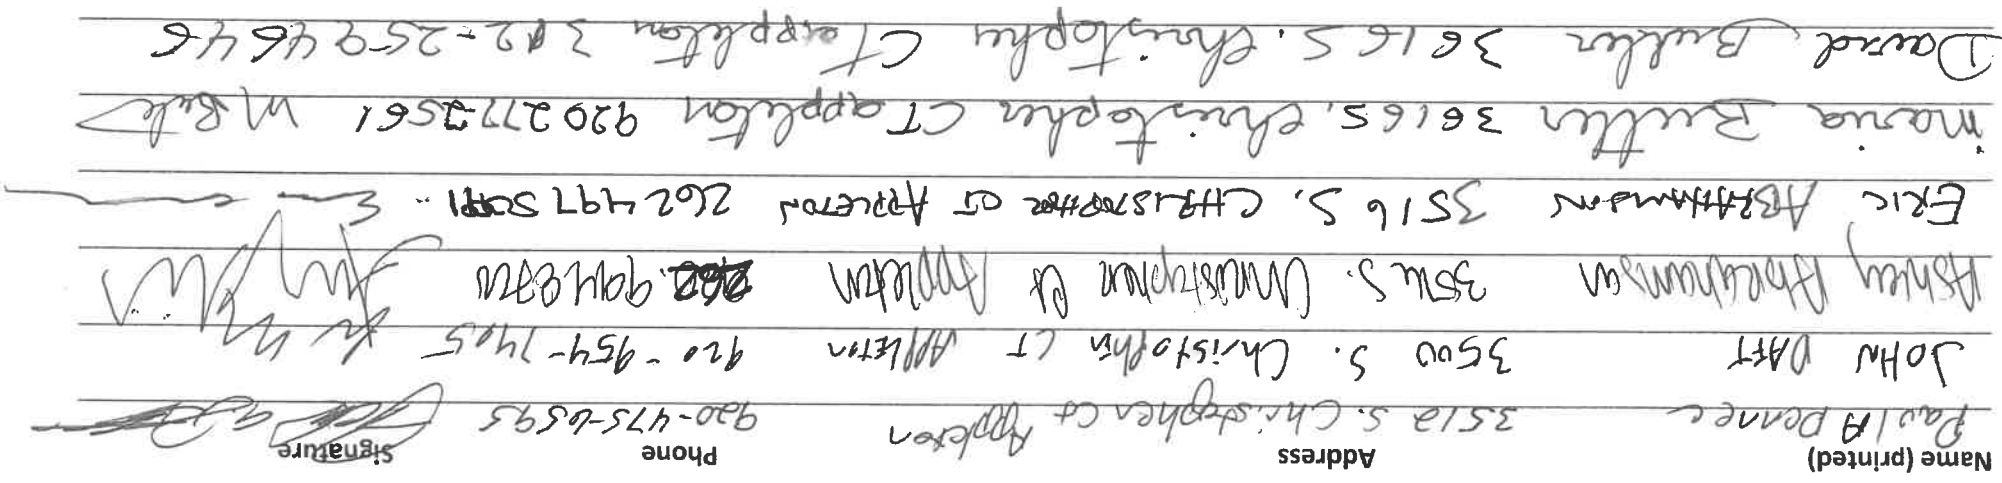 Name (printed) Address Phone Signature
Paul A Dennee 3512 S. Christopher Ct Appleton 920-475-6595
JOHN DAFT 3500 S. Christopher CT APPLETON 920-954-1405
Ashley Abrahamson 3516 S. Christopher Ct Appleton
ERIC ABRAHAMSON 3516 S. CHRISTOPHER CT APPLETON 262 497
maria Butler 3616 S. Christopher CT appleton 920 277-2561 M Butl
David Butler 3616 S. Christopher CT appleton 312-259 4646